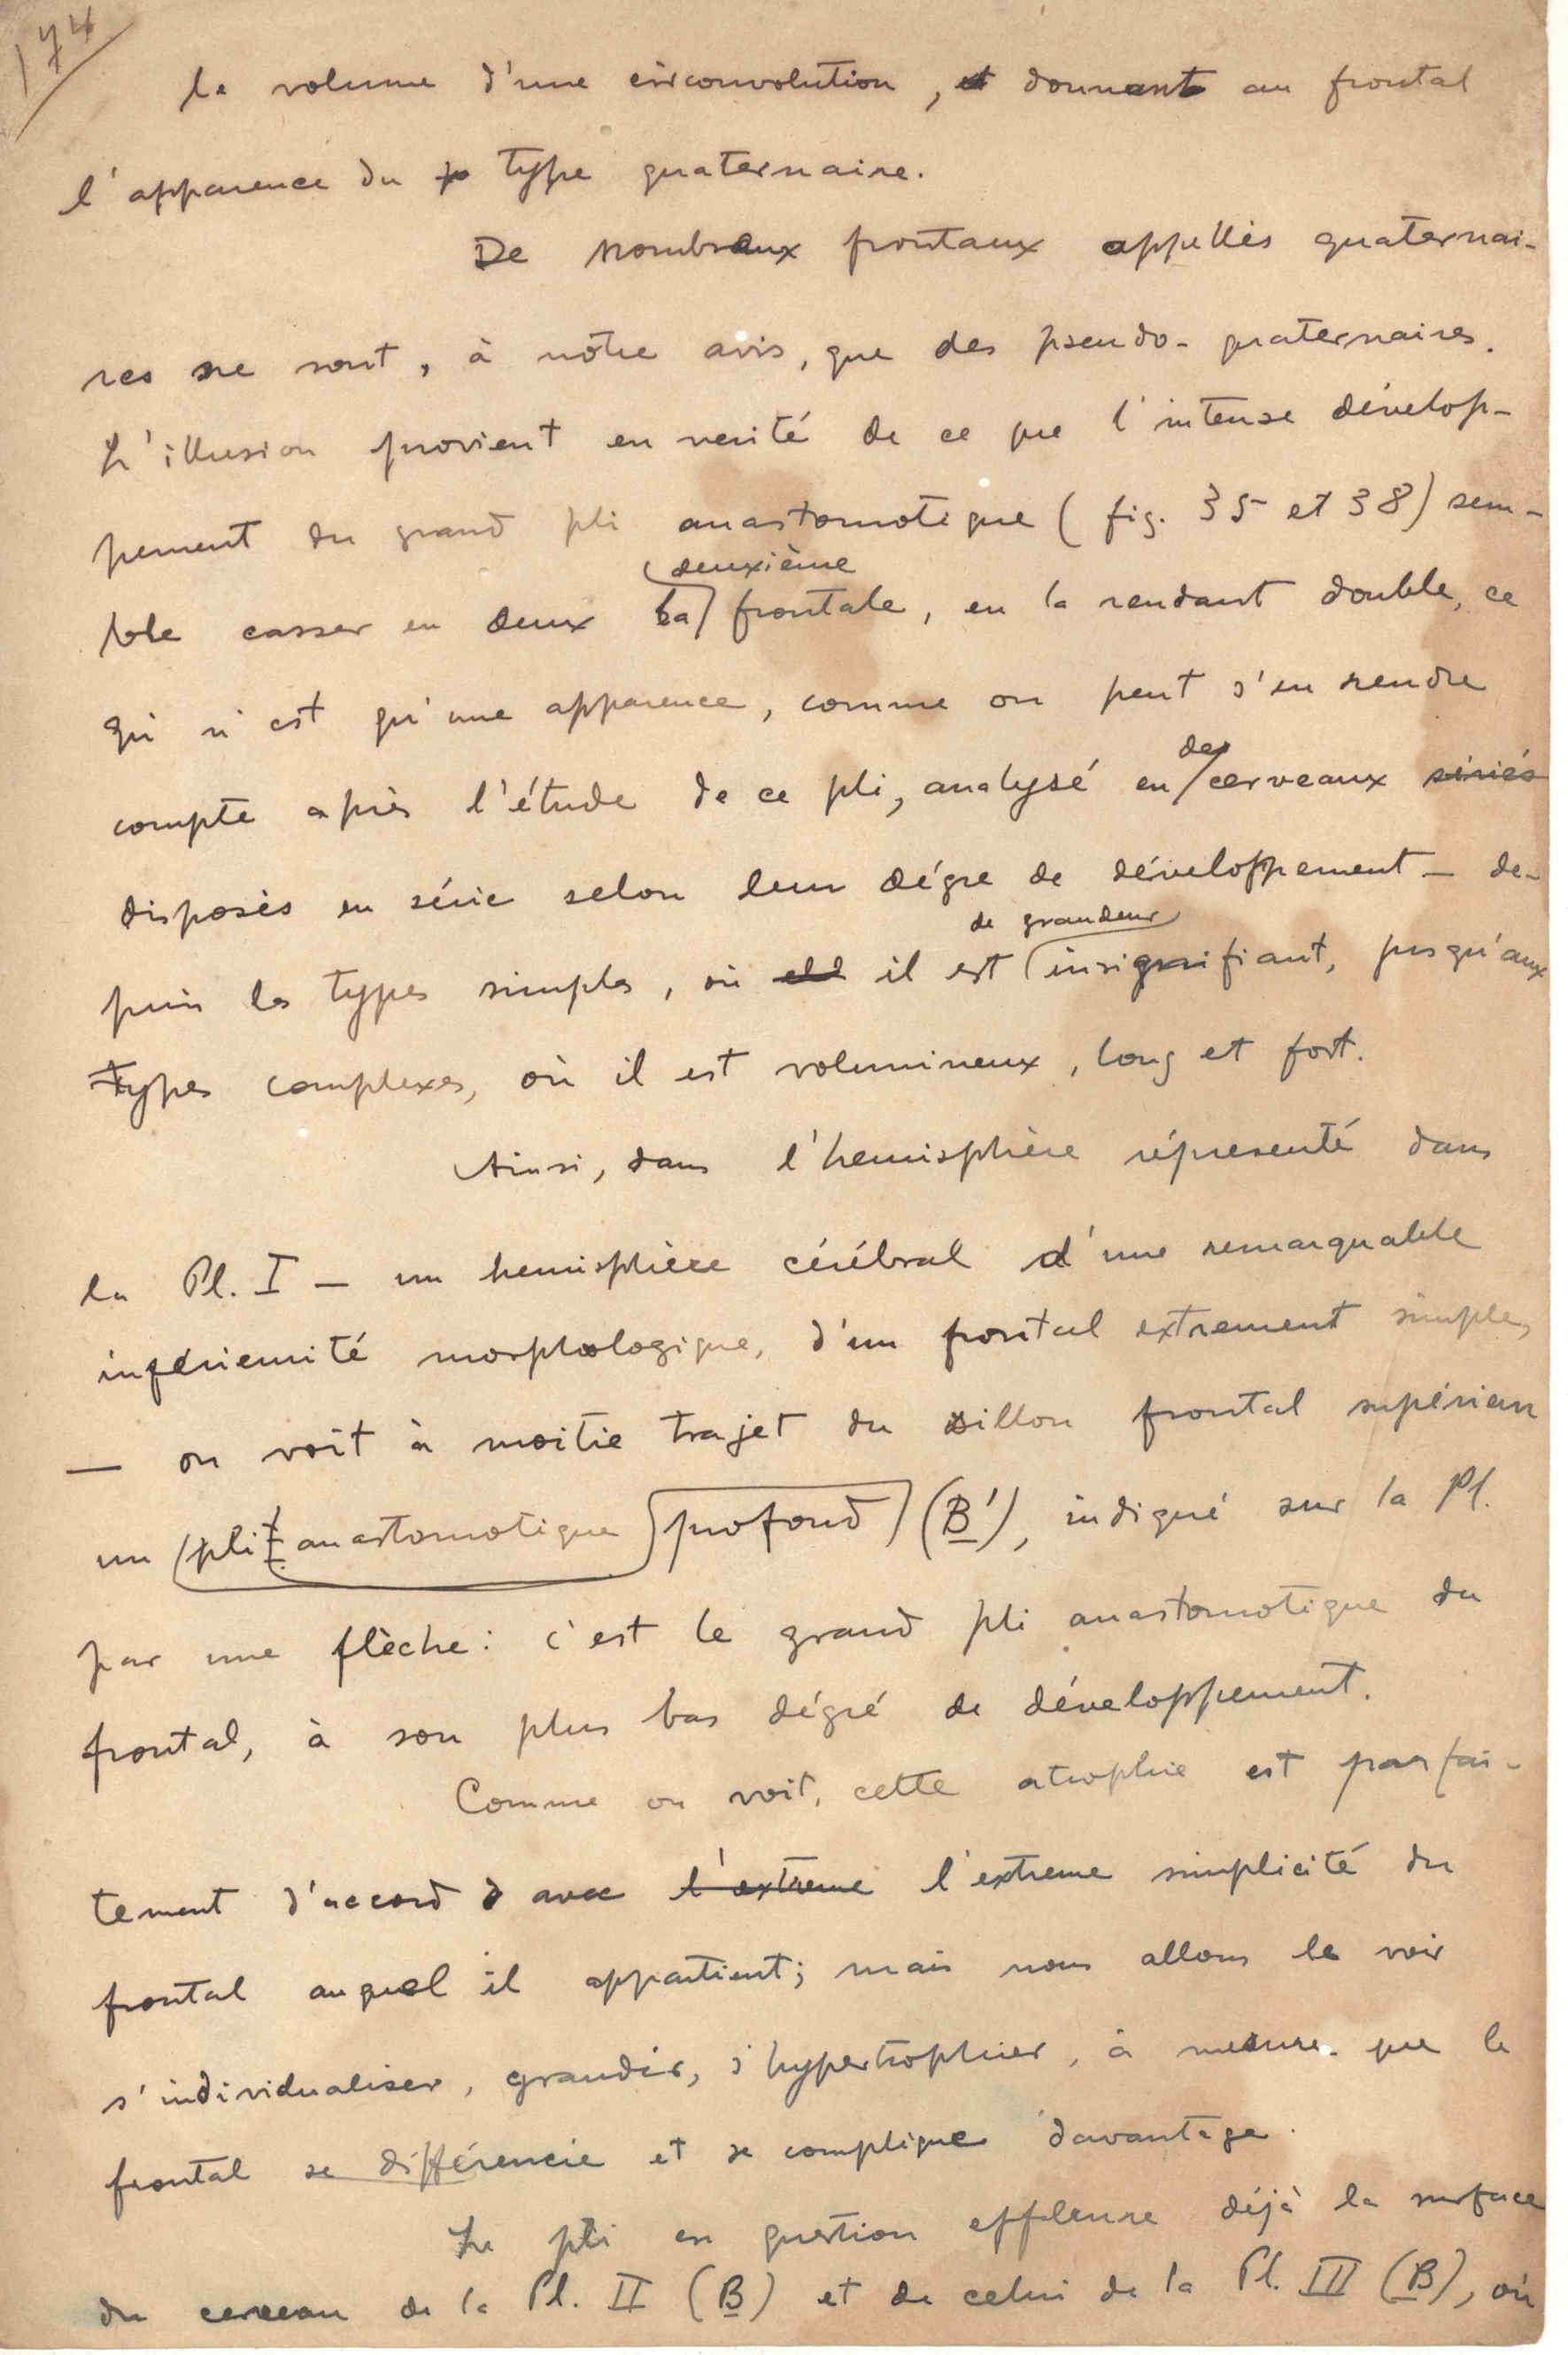 174
le volume d'une circonvolution, et donnant au frontal
l'apparence du type quaternaire.
De nombreux frontaux appellés quaternai-
res ne sont, à nôtre avis, que des pseudo-quaternaires.
L'illusion provient en verité de ce que l'intense dévelop-
pement du grand pli anastomotique (fig. 35 et 38) sem-
deuxième
ble casser en deux la frontale, en la rendant double, ce
qui n'est qu'une apparence, comme on peut s'en rendre
des
compte après l'étude de ce pli, analysé en cerveaux sériés
disposés en série selon leur dégre de développement — de-
de grandeur
puis les types simples, où il est insignifiant, jusqu'aux
types complexes, où il est volumineux, long et fort.
Ainsi, dans l'hemisphère répresenté dans
la Pl. I — un hemisphère cérébral d'une remarquable
inférieurité morphologique, d'un frontal extrement simple,
— on voit à moitie trajet du sillon frontal supérieur
un pli anastomotique profond (B'), indiqué sur la Pl.
par une flèche: c'est le grand pli anastomotique du
frontal, à son plus bas dégré de développement.
Comme on voit, cette atrophie est parfai-
tement d'accord avec l'extreme l'extreme simplicité du
frontal auquel il appartient; mais nous allons le voir
s'individualiser, grandir, s'hypertrophier, à mesure que le
frontal se différencie et se complique davantage.
Le pli en question effleure déjà la surface
du cerveau de la Pl. II (B) et de celui de la Pl. III (B), où